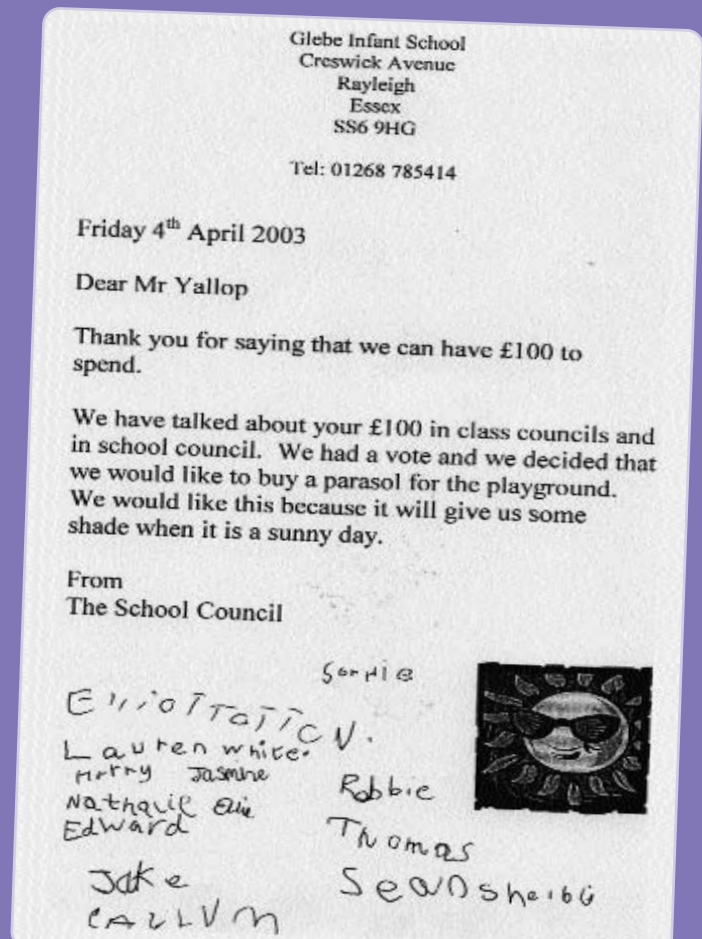 Glebe Infant School
Creswick Avenue
Rayleigh
Essex
SS6 9HG
Tel: 01268 785414
Friday 4th April 2003
Dear Mr Yallop
Thank you for saying that we can have £100 to
spend.
We have talked about your £100 in class councils and
in school council. We had a vote and we decided that
we would like to buy a parasol for the playground.
We would like this because it will give us some
shade when it is a sunny day.
From
The School Council
Lauren white.
Jasmine
Robbie
Edward
Thomas
Jake
Sean
CALLVM